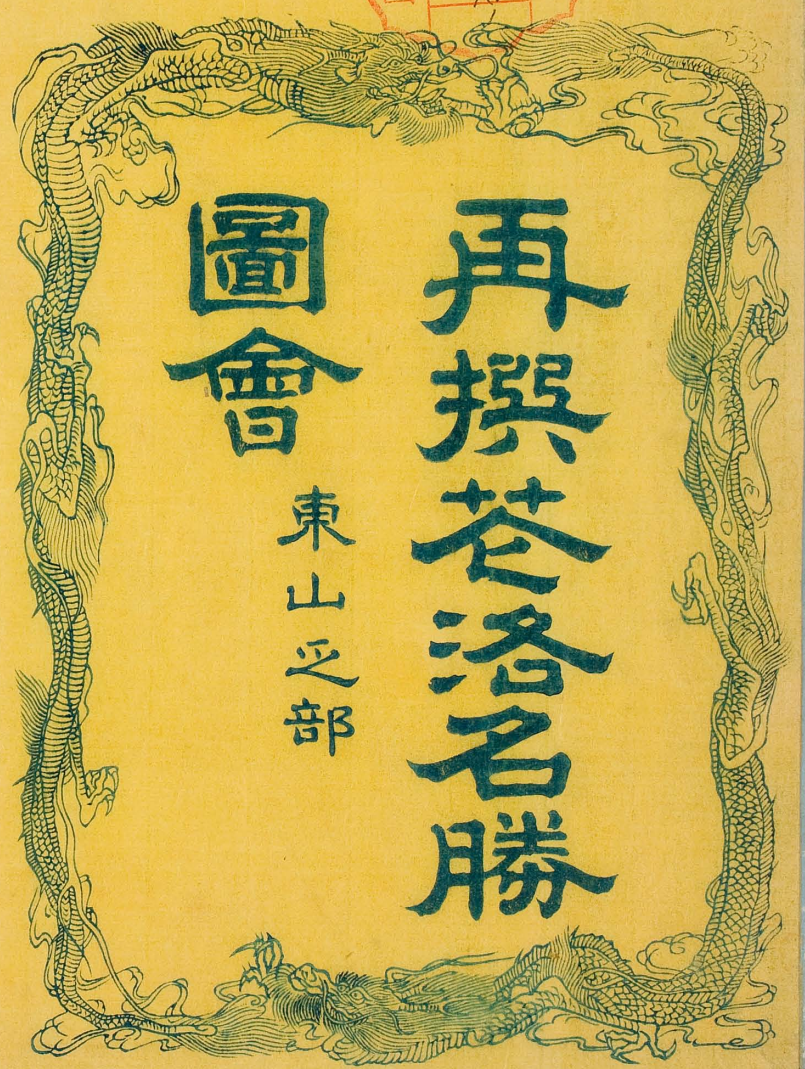 再撰花洛名勝
圖會
東山之部